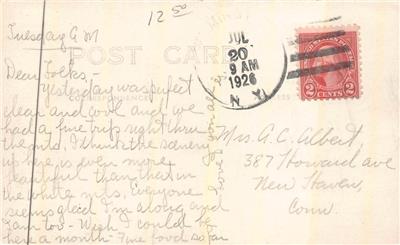 12 50
Tuesday A M
POST CARD
CORRESPONDENCE
Dear Folks,-
Yesterday was perfect
clear and cool and we
had a fine trip right thru
the mts. I think the scenery
up here is even more
beautiful than that in
the white mts. Everyone
seems glad I'm along and
I am too - Wish I could be
here a month - Fine food so far
love to you all
JUL
20
9 AM
1926
N.Y.
2 CENTS 2
Mrs. A. C. Albert,
387 Howard ave
New Haven,
Conn.